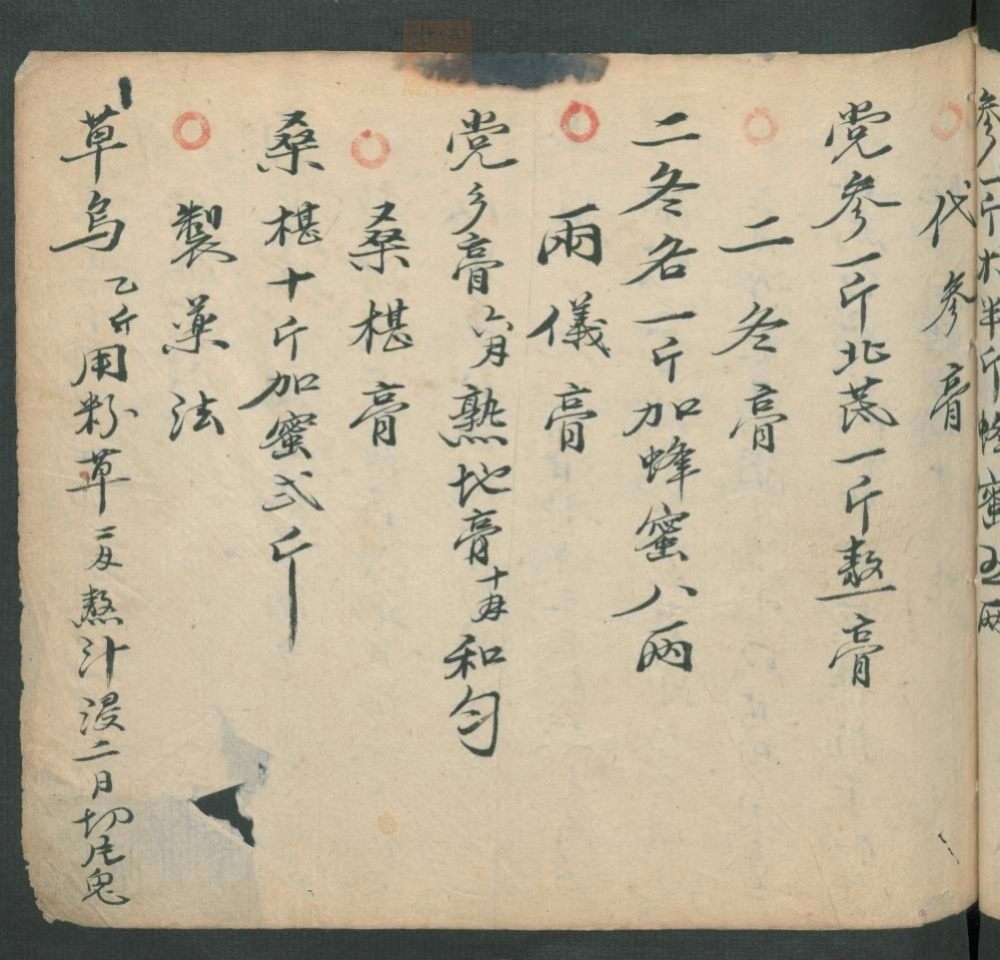 參一斤 半斤蜂蜜五兩
代參膏
党參一斤北芪一斤熬膏
二冬膏
二冬各一斤加蜂蜜八兩
兩儀膏
党參膏六両熟地膏十両和匀
桑椹膏
桑椹十斤加蜜弍斤
製藥法
草烏乙斤用粉草二両熬汁浸二日切片鬼